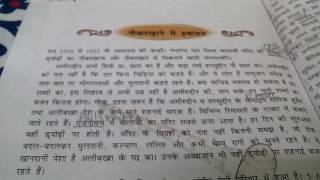 नौबतखाने में इबादत
सन् 1916 से 1922 के आसपास की काशी। पंचगंगा घाट स्थित बालाजी मंदिर की
ड्योढ़ी। ड्योढ़ी का नौबतखाना और नौबतखाने से निकलने वाली मंगलध्वनि।
अमीरुद्दीन अभी सिर्फ़ छः साल का है और बड़ा भाई शम्सुद्दीन नौ साल का। अमीरुद्दीन
को पता नहीं है कि राग किस चिड़िया को कहते हैं। और ये लोग हैं मामूजान वगैरह जो
बात-बात पर भीमपलासी और मुलतानी कहते रहते हैं। क्या वाजिब मतलब हो सकता है इन
शब्दों का, इस लिहाज से अभी उम्र नहीं है अमीरुद्दीन की, जान सके इन भारी शब्दों का
वजन कितना होगा। गोया, इतना ज़रूर है कि अमीरुद्दीन व शम्सुद्दीन के मामाद्वय सादिक हुसैन
तथा अलीबख्श देश के जाने-माने शहनाई वादक हैं।
जाते रहते हैं। रोज़नामचे में बालाजी का मंदिर सबसे ऊपर आता है। हर दिन की शुरुआत
वहीं ड्योढ़ी पर होती है। मंदिर के विग्रहों को पता नहीं कितनी समझ है, जो रोज
बदल-बदलकर मुलतानी, कल्याण, ललित और कभी भैरव रागों को सुनते रहते हैं। ये
खानदानी पेशा है अलीबख्श के घर का। उनके अब्बाजान भी यहीं ड्योढ़ी पर शहनाई बजाते
रहते हैं।